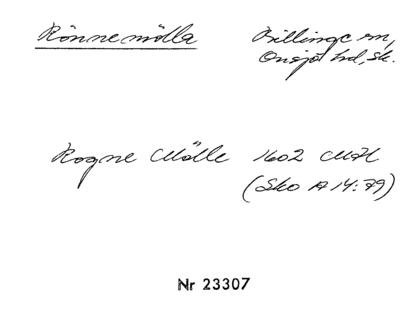 Rönnemölla Billinge sn,
Onsjö hd, Sk.
Rogne Mölle 1602 MH
(Sko A 14:79)
Nr 23307